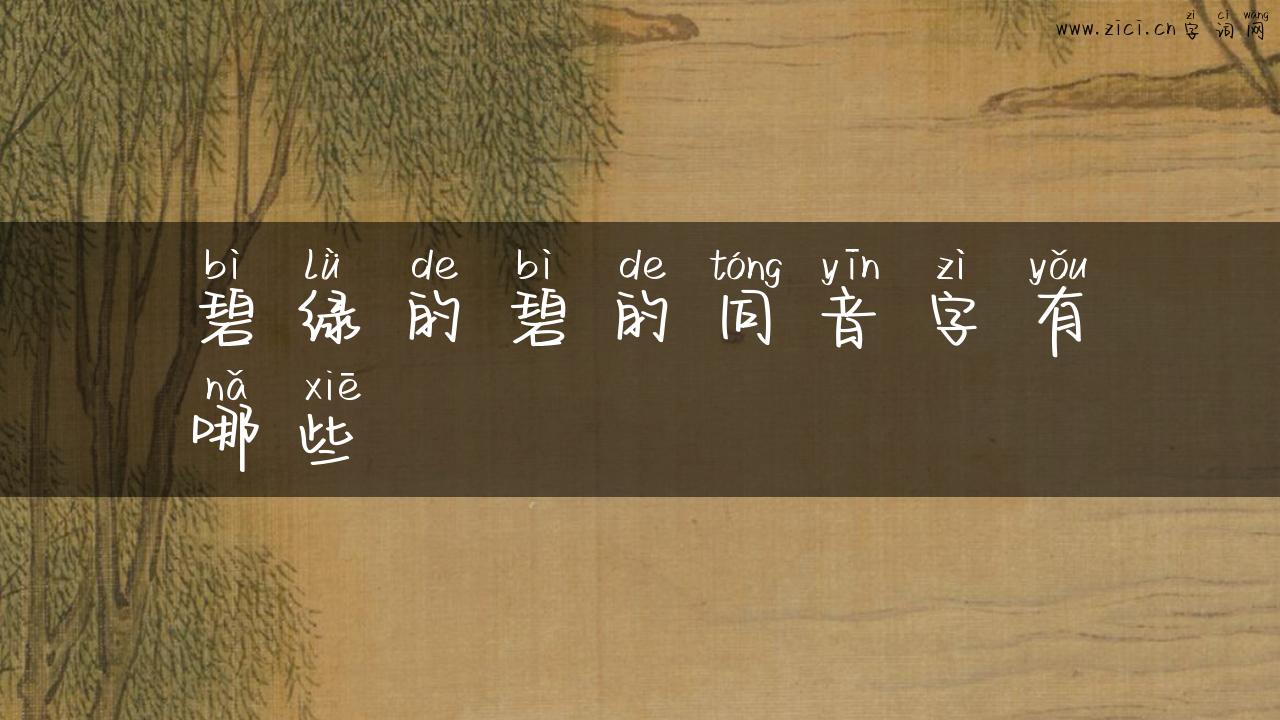 zì cí wǎng
www.zici.cn字词网
bì lǜ de bì de tóng yīn zì yǒu
碧绿的碧的同音字有
nǎ xiē
哪些